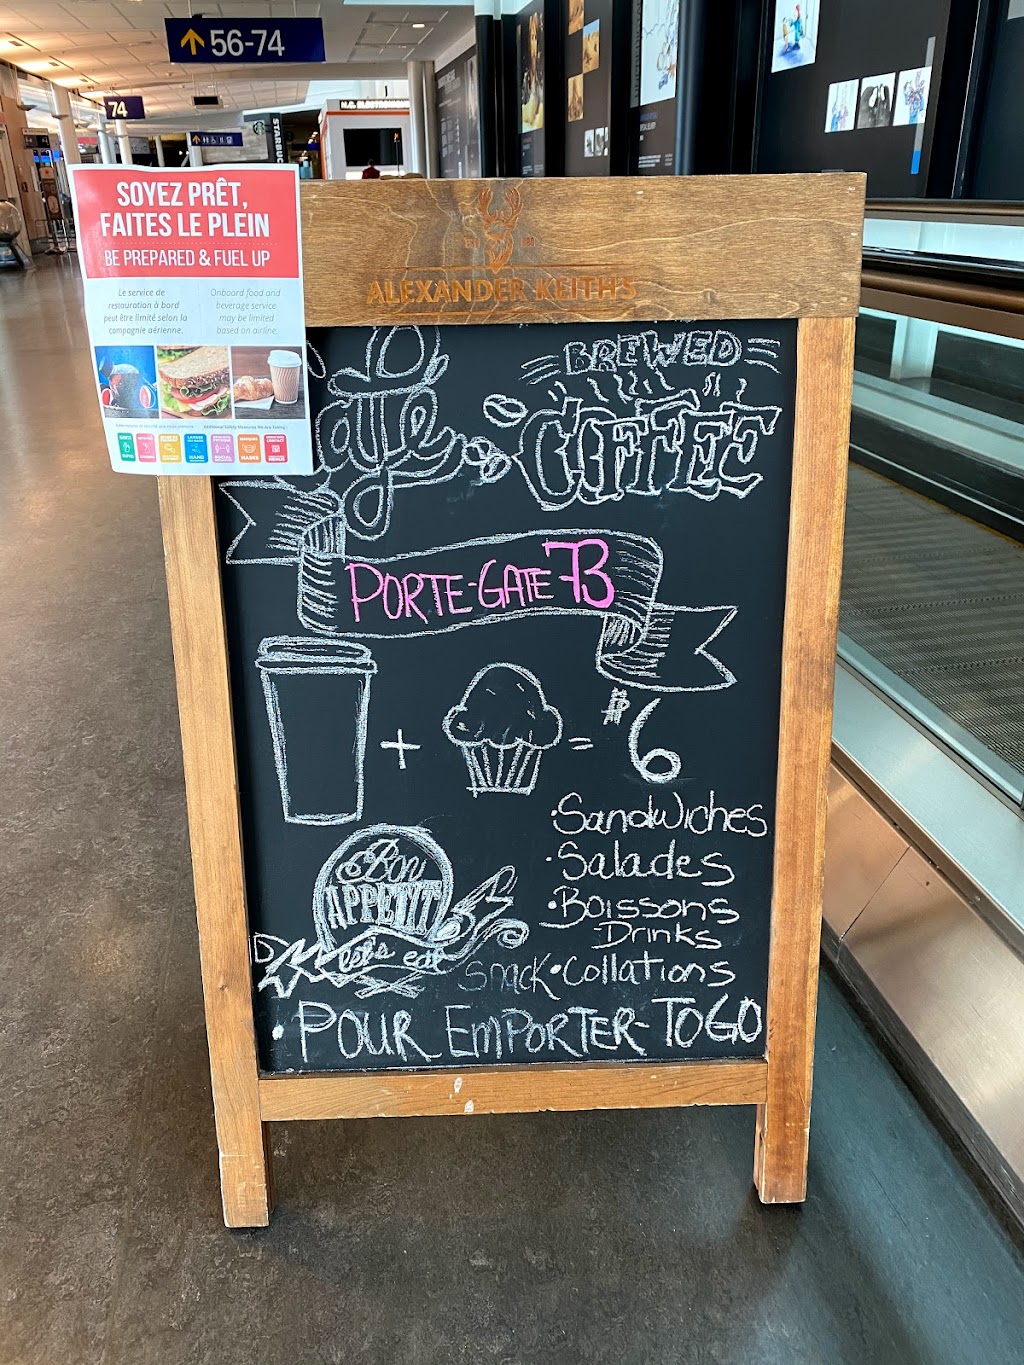 56-74
74
STARBUCKS
SOYEZ PRÊT,
FAITES LE PLEIN
BE PREPARED & FUEL UP
Le service de
restauration à bord
peut être limité selon la
compagnie aérienne.
Onboard food and
beverage service
may be limited
based on airline.
Additional Safety Measures We Are Taking
ALEXANDER KEITH'S
BREWED
COFFEE
PORTE-GATE 73
+ = $6
·Sandwiches
·Salades
·Boissons
-Drinks
Snack·Collations
Bon
APPETIT
let's eat
·POUR EMPORTER-TOGO